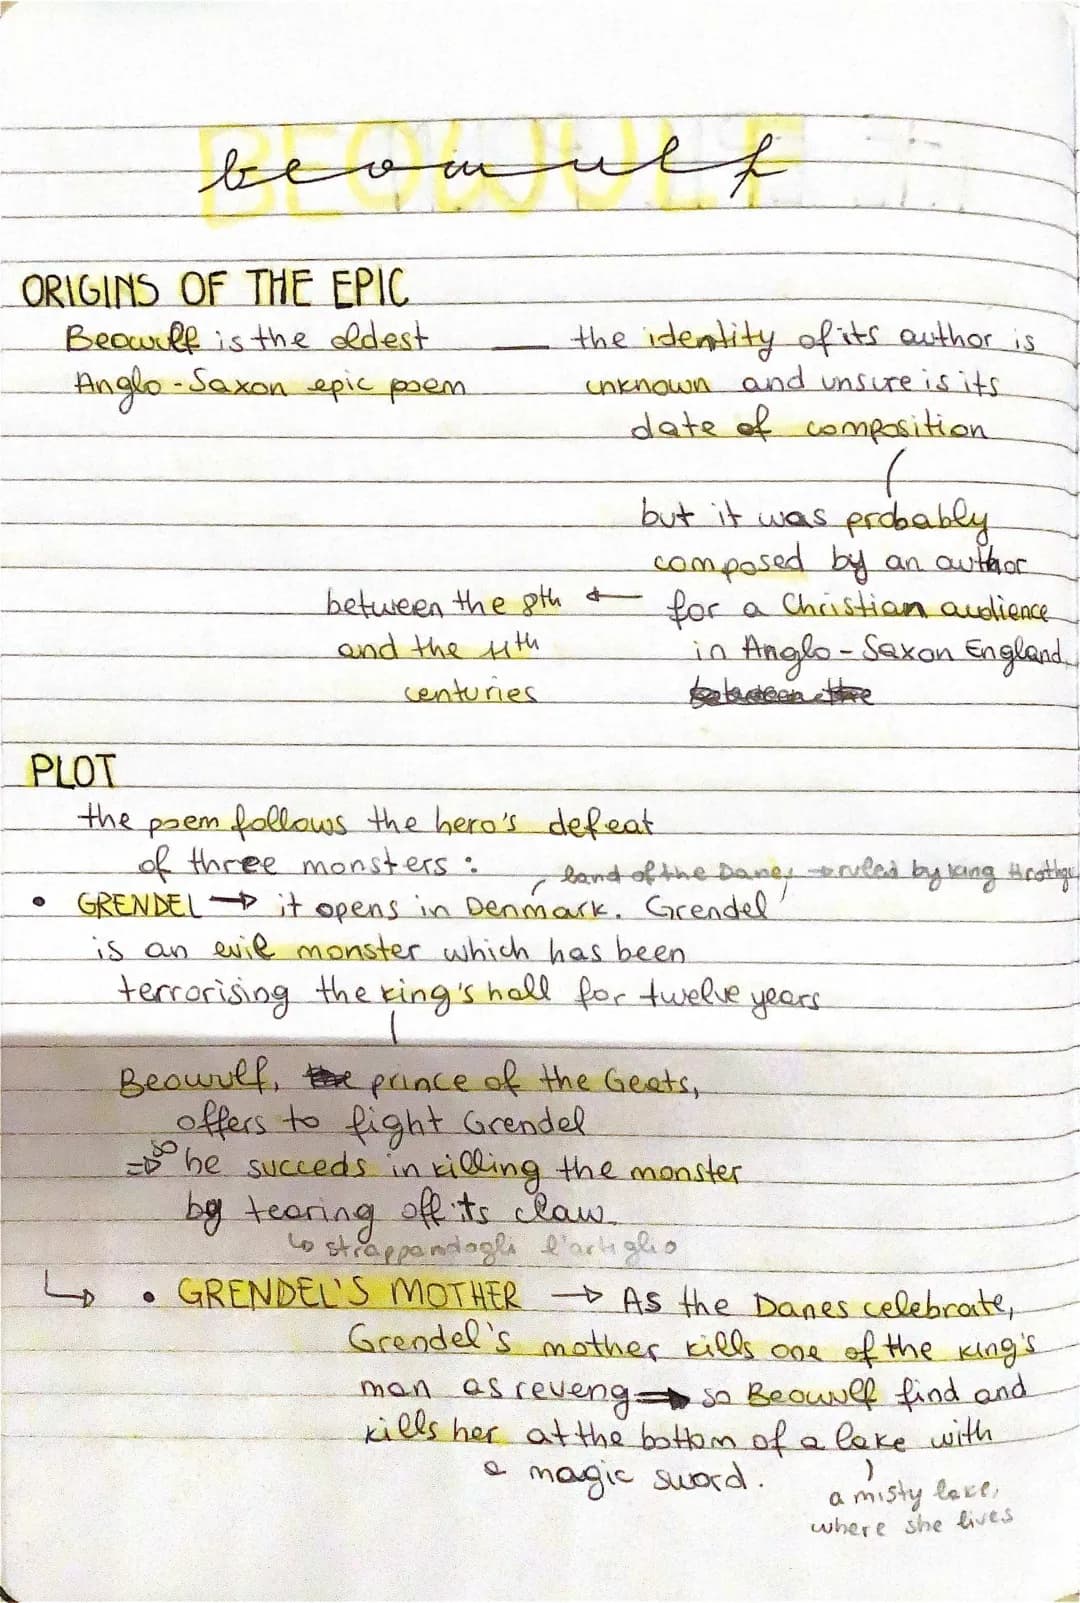 beowulf
ORIGINS OF THE EPIC
Beowulf is the oldest
Anglo-Saxon epic poem
the identity of its author is
unknown and unsure is its
date of composition
but it was probably
composed by an author
for a Christian audience
in Anglo-Saxon England
between the 8th
and the 11th
centuries
PLOT
the poem follows the hero's defeat
of three monsters:
land of the Danes → ruled by king
• GRENDEL → it opens in Denmark. Grendel
is an evil monster which has been
terrorising the king's hall for twelve years
Beowulf, prince of the Geats,
offers to fight Grendel
⇒ so he succeds in killing the monster
by tearing off its claw
↳ strappandogli l'artiglio
↳ • GRENDEL'S MOTHER → As the Danes celebrate,
Grendel's mother kills one of the king's
man as reveng → so Beowulf find and
kills her at the bottom of a lake with
a magic sword.
a misty lake,
where she lives